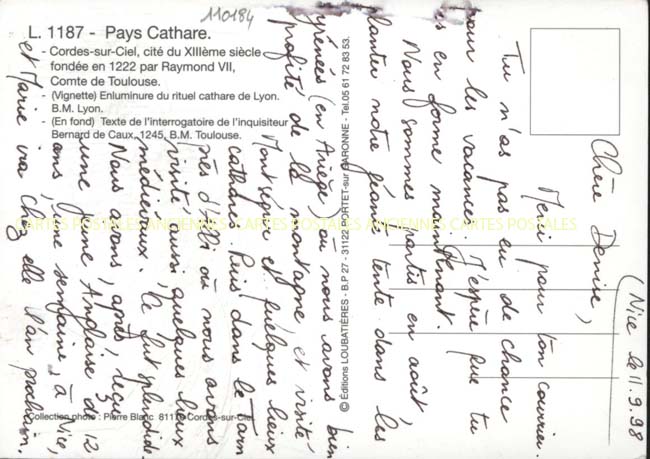 110184
L. 1187 - Pays Cathare.
- Cordes-sur-Ciel, cité du XIIIème siècle
fondée en 1222 par Raymond VII,
Comte de Toulouse.
- (Vignette) Enluminure du rituel cathare de Lyon.
B.M. Lyon.
- (En fond) Texte de l'interrogatoire de l'inquisiteur
Bernard de Caux, 1245, B.M. Toulouse.
© Editions LOUBATIÈRES - B.P 27 - 31122 PORTET-sur-GARONNE - Tel.05 61 72 83 53.
Collection photo : Pierre Blanc 81170 Cordes-sur-Ciel
CARTES POSTALES ANCIENNES CARTES POSTALES ANCIENNES CARTES POSTALES
(Nice le 11.9.98
Chère Denise,
Merci pour ton courrier.
Tu n'as pas eu de chance
pour les vacances. J'espère que tu
es en forme maintenant.
Nous sommes partis en août,
planter notre géante tente dans les
Pyrénées (en Ariège) où nous avons bien
profité de la montagne et visité
Montségur et quelques lieux
cathares. Puis dans le Tarn
près d'Albi où nous avons
visité aussi quelques lieux
médiévaux. Ce fut splendide.
Nous avons, après, reçu
une jeune Anglaise de 12
ans, une semaine, à Nice,
et Marie ira chez elle l'an prochain.